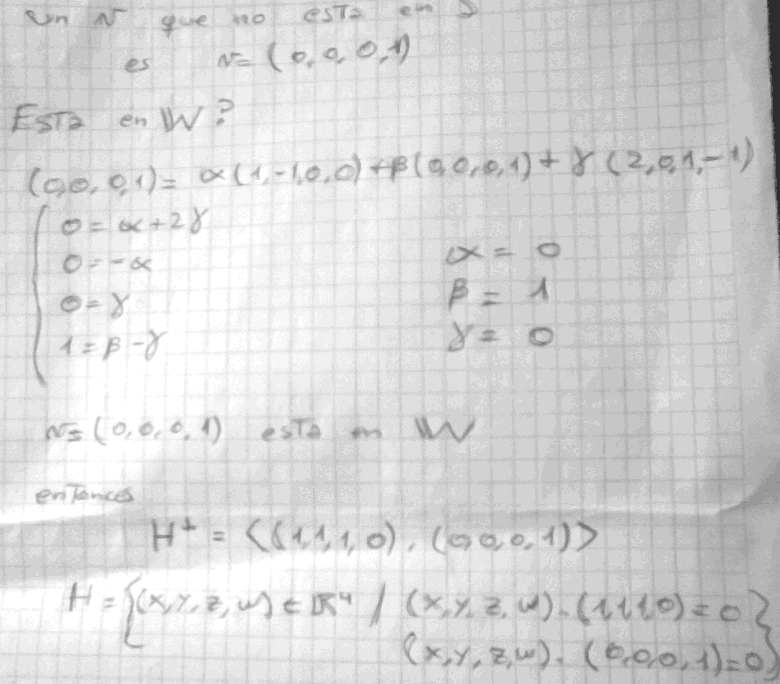 un v que no esta en S
es v=(0,0,0,1)
Esta en W?
(0,0,0,1)= α(1,-1,0,0)+β(0,0,0,1)+γ(2,0,1,-1)
0=α+2γ
0=-α α=0
0=γ β=1
1=β-γ γ=0
v=(0,0,0,1) esta en W
entonces
H⊥=<(1,1,1,0),(0,0,0,1)>
H={(x,y,z,w)∈ℝ⁴/(x,y,z,w).(1,1,1,0)=0
(x,y,z,w).(0,0,0,1)=0}